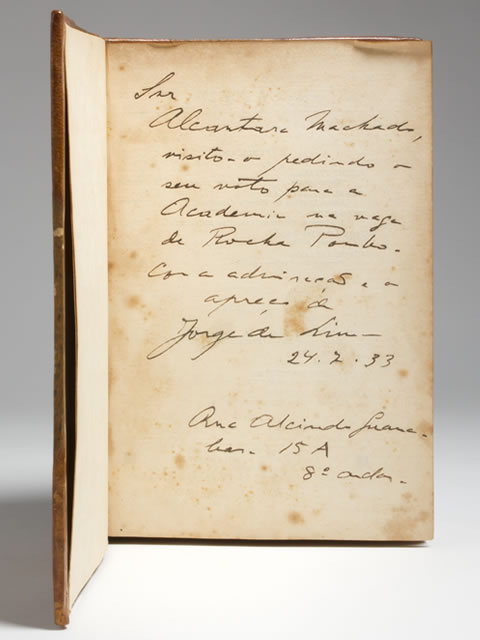 Snr
Alcantara Machado,
visito-o pedindo o
seu voto para a
Academia na vaga
de Rocha Pombo.
Com a admiração e o
apreço de
Jorge de Lima
24.7.33
Rua Alcindo Guana-
bara. 15 A
8º andar.